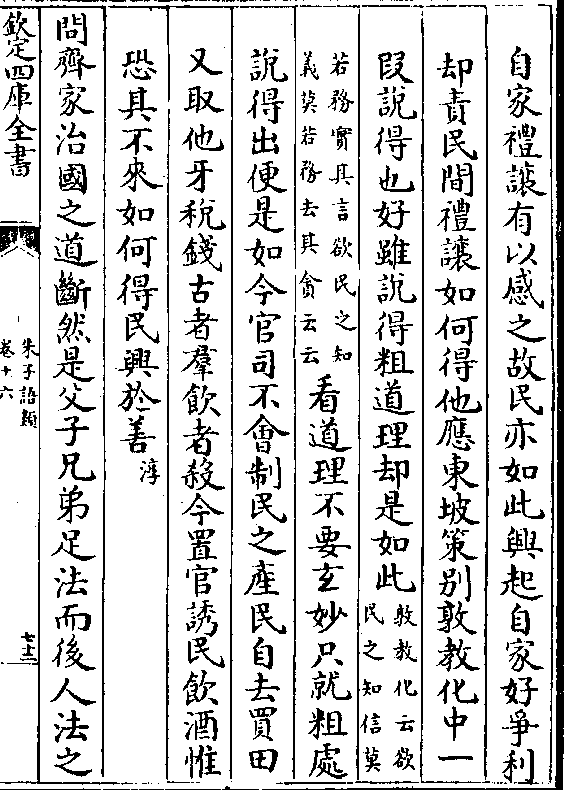 自家禮讓有以感之故民亦如此興起自家好爭利
却責民間禮讓如何得他應東坡策別敦教化中一
段說得也好雖說得粗道理却是如此
敦教化云欲
民之知信莫
若務實其言欲民之知
義莫若務去其貪云云
看道理不要玄妙只就粗處
說得出便是如今官司不會制民之產民自去買田
又取他牙稅錢古者羣飲者殺今置官誘民飲酒惟
恐其不來如何得民興於善
淳
問齊家治國之道斷然是父子兄弟足法而後人法之
欽定四庫全書
朱子語類
卷十六
七十二